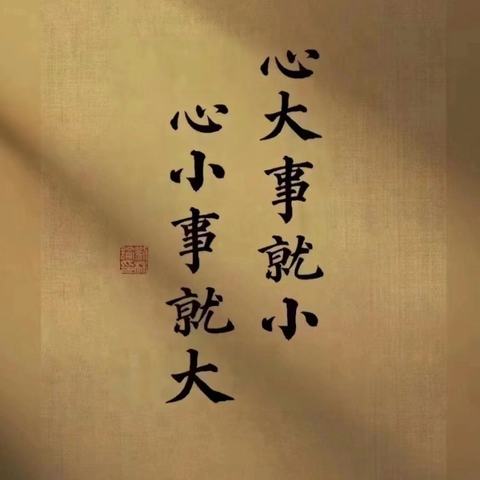 心大事就小
心小事就大